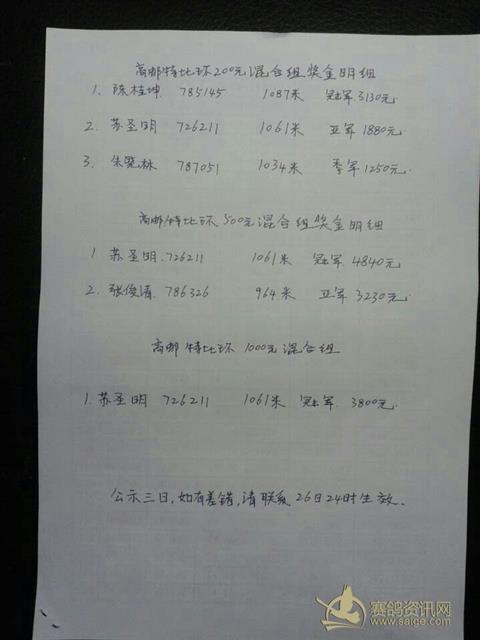 高邮特比环200元混合组奖金明细
1. 陈桂坤 785145 1087米 冠军 3130元
2. 苏圣明 726211 1061米 亚军 1880元
3. 朱宽林 787051 1034米 季军 1250元
高邮特比环 500元混合组奖金明细
1 苏圣明 726211 1061米 冠军 4840元
2. 张俊清 786326 964米 亚军 3230元
高邮特比环 1000元混合组
1. 苏圣明 726211 1061米 冠军 3800元
公示三日,如有差错,请联系26日24时生效.
赛鸽资讯网
www.saige.com